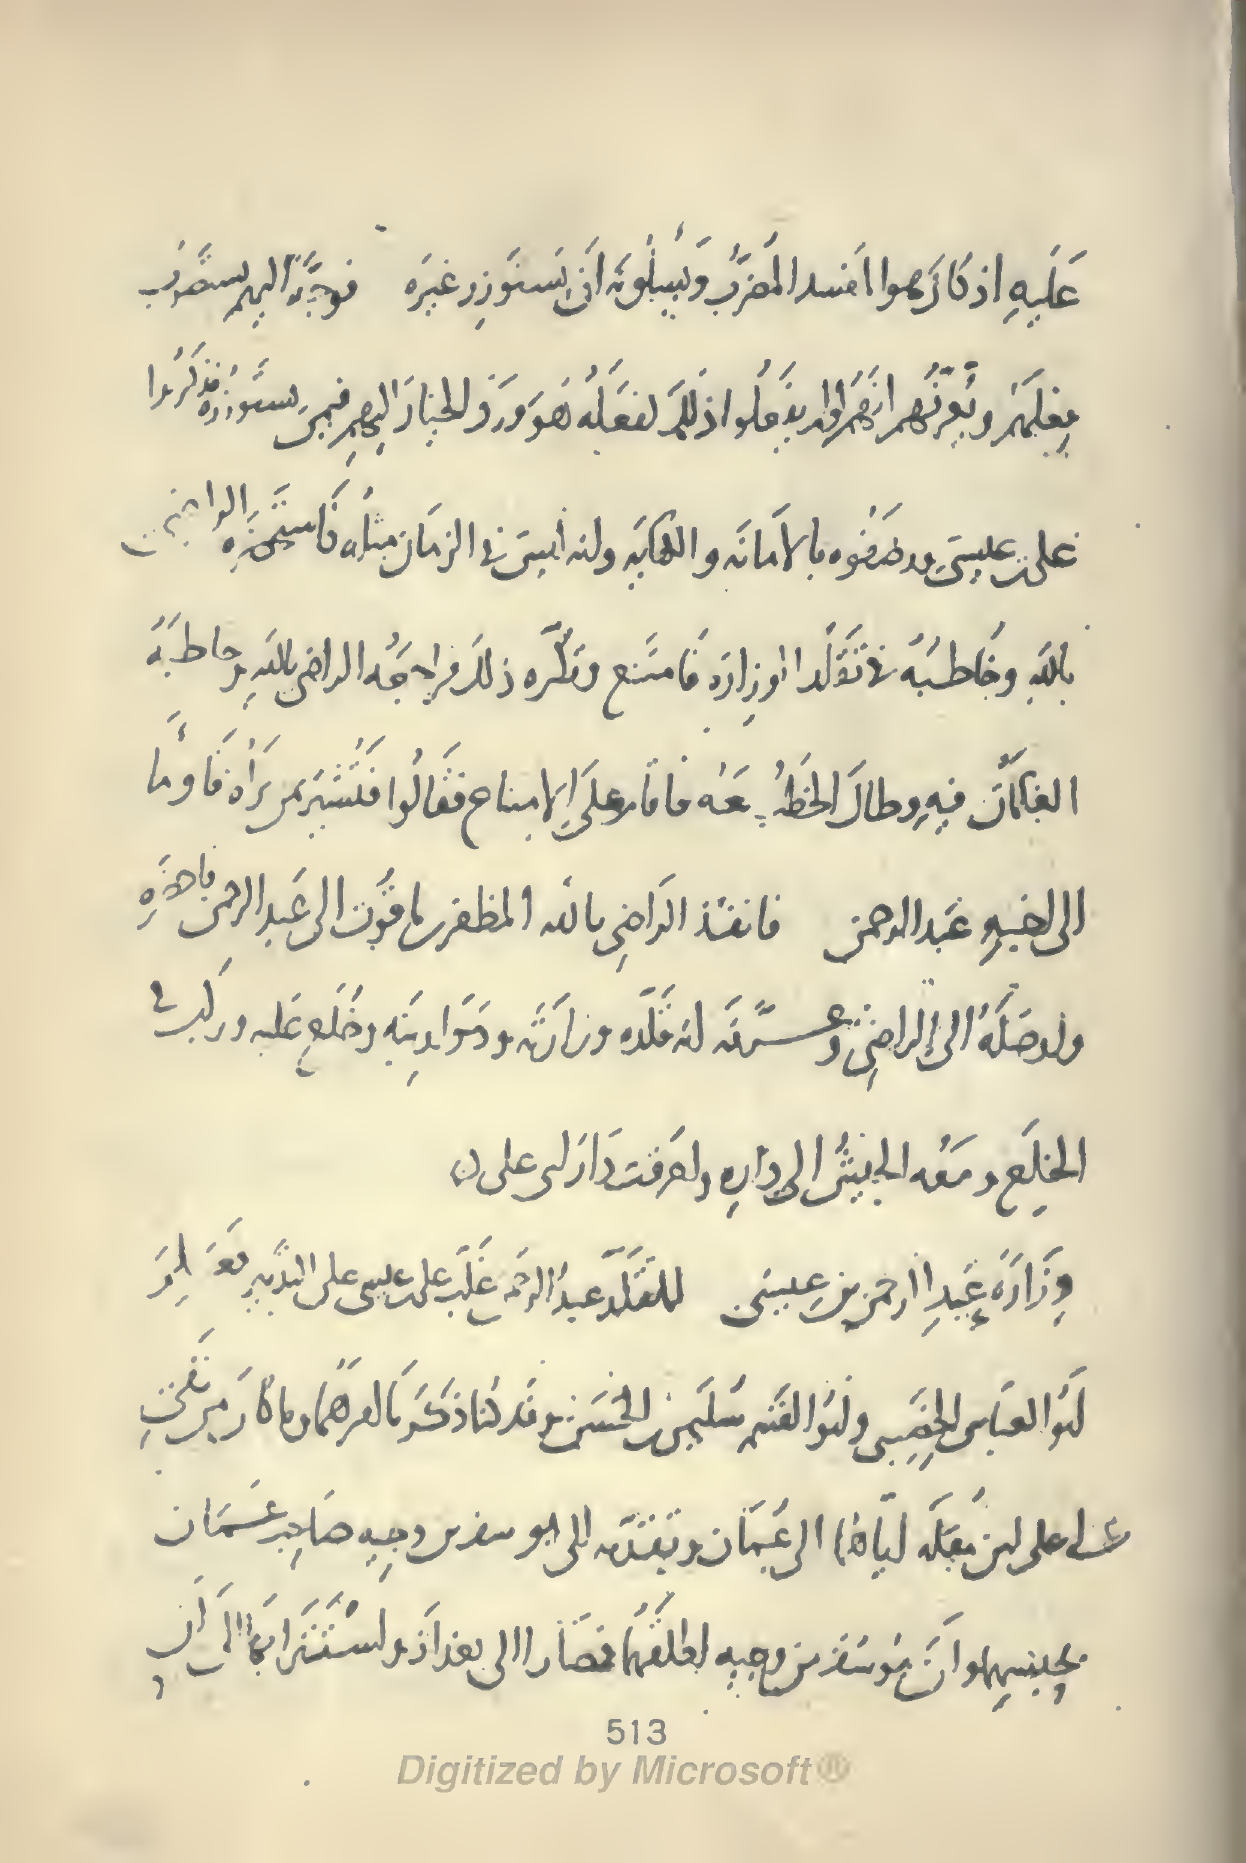 عليه اذ كان هوا افسد المضرب ويسلونه ان يستوزر غيره فوجه اليهم يستصوب
فعلهم ويعرفهم انهم لو لم يفعلوا ذلك لفعله هو ورد الخيار اليهم فيمن يستوزره فذكروا
على بن عيسى ووصفوه بالامانة والكفاية وانه ليس في الزمان مثله فاستحضره الراضي
بالله وخاطبه في تقلد الوزارة فامتنع وتكره ذلك فراجعه الراضي بالله وخاطبه
الغلمان فيه وطال الخطب معه فاقام على الامتناع فقالوا فتشير بمن تراه فاومأ
الى اخيه عبد الرحمن فانفذ الراضي بالله المظفر بن ياقوت الى عبد الرحمن فاحضره
واوصله الى الراضي وعرفه انه قلده وزارته ودواوينه وخلع عليه وركب في
الخلع ومعه الجيش الى داره واحرقت دار ابي على بن
وزارة عبد الرحمن بن عيسى لما تقلد عبد الرحمن غلب على بن عيسى على التدبير
ابو العباس الخصيبي وابو القسم سليمن بن الحسن وقد كنا ذكرنا امرهما وما كان من نفي
على ابن مقلة اياهما الى عمان وتقدمه الى ابو سف بن وجيه صاحب عمان
بحبسهما وان يوسف بن وجيه اطلقهما فصارا الى بغداذ واستترا بها الى ان
513
Digitized by Microsoft®